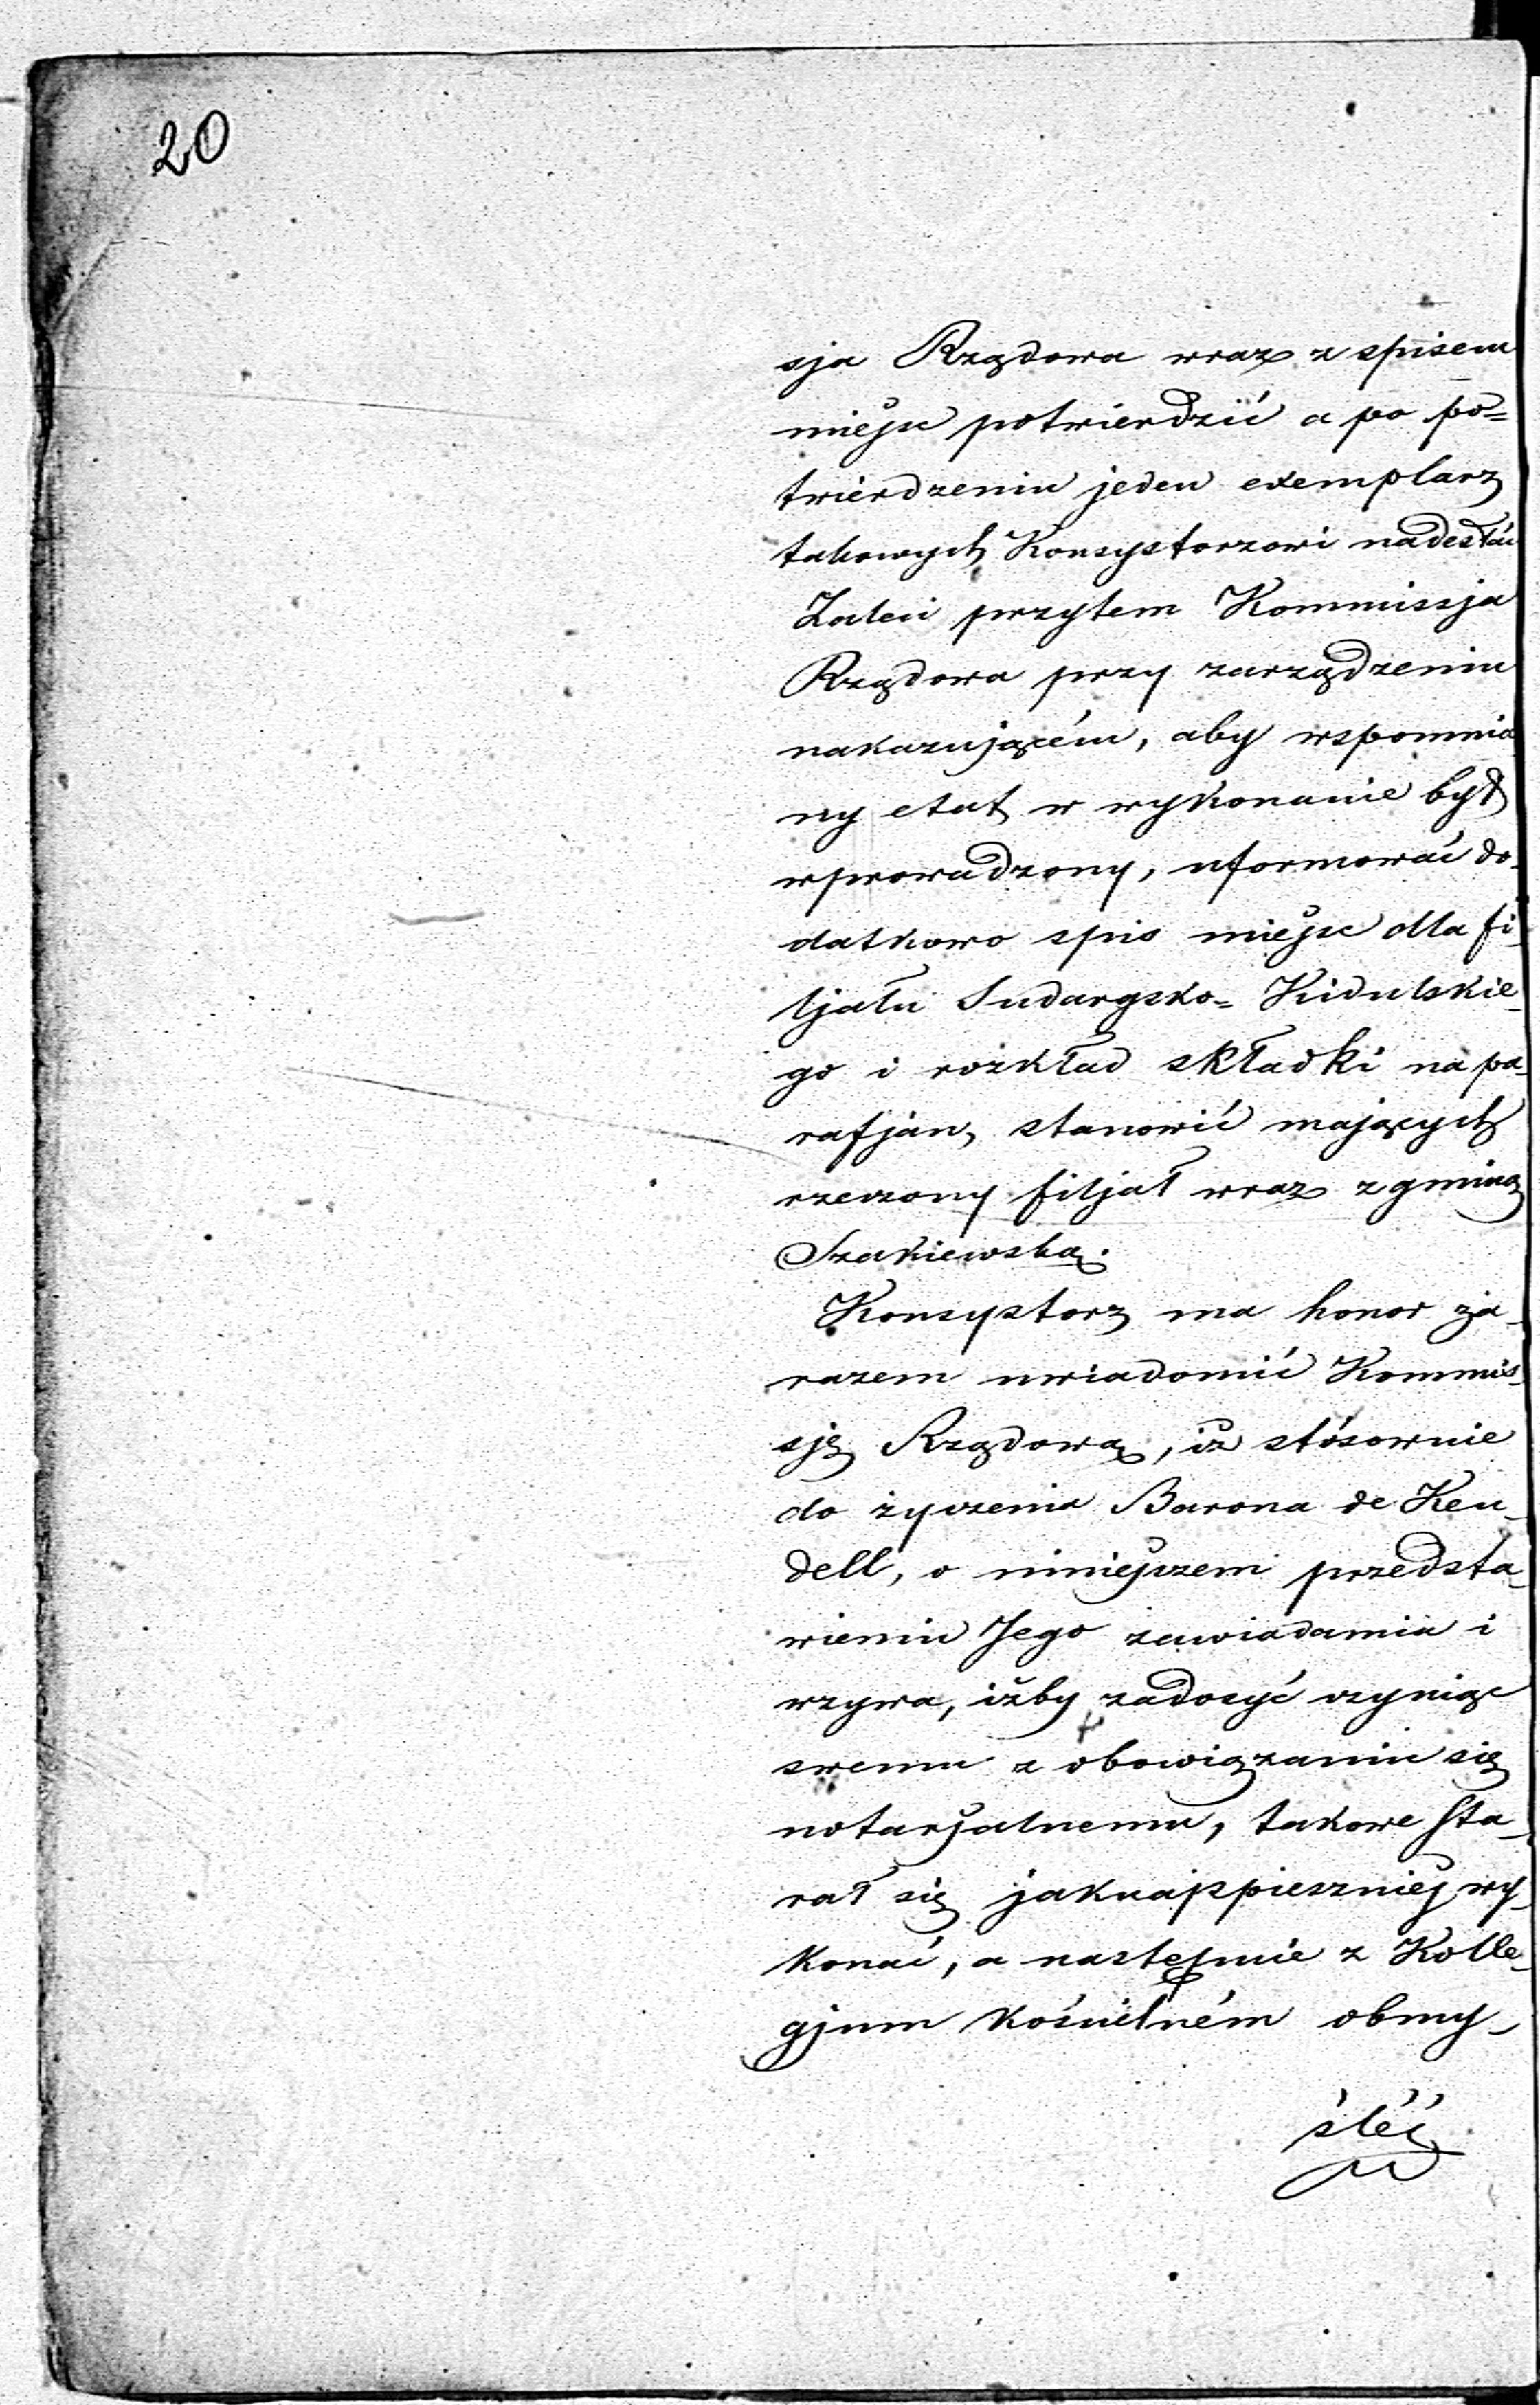 20
sja Rządowa wraz z spisem
miejsc potwierdzić a po po=
twierdzeniu jeden exemplarz
takowych Konsystorzowi nadesłać
Zaleci przytem Kommissja
Rządowa przy zarządzeniu
nakazującém, aby wspomnia
ny etat w wykonanie był
wprowadzony, uformować do-
datkowo spis miejsc dla fi-
ljału Sudargsko=Kidulskie-
go i rozkład składki na pa-
rafjan, stanowić mających
rzeczony filjał wraz z gminą
Szakiewską.
Konsystorz ma honor za-
razem uwiadomić Kommis-
sję Rządową, iż stósownie
do życzenia Barona de Keu-
dell, o niniejszem przedsta-
wieniu Jego zawiadamia i
wzywa, iżby zadosyć czyniąc
swemu zobowiązaniu się
notarjalnemu, takowe sta-
rał się jaknajspieszniej wy-
konać, a następnie z Kolle-
gjum kościelném obmy-
śléć